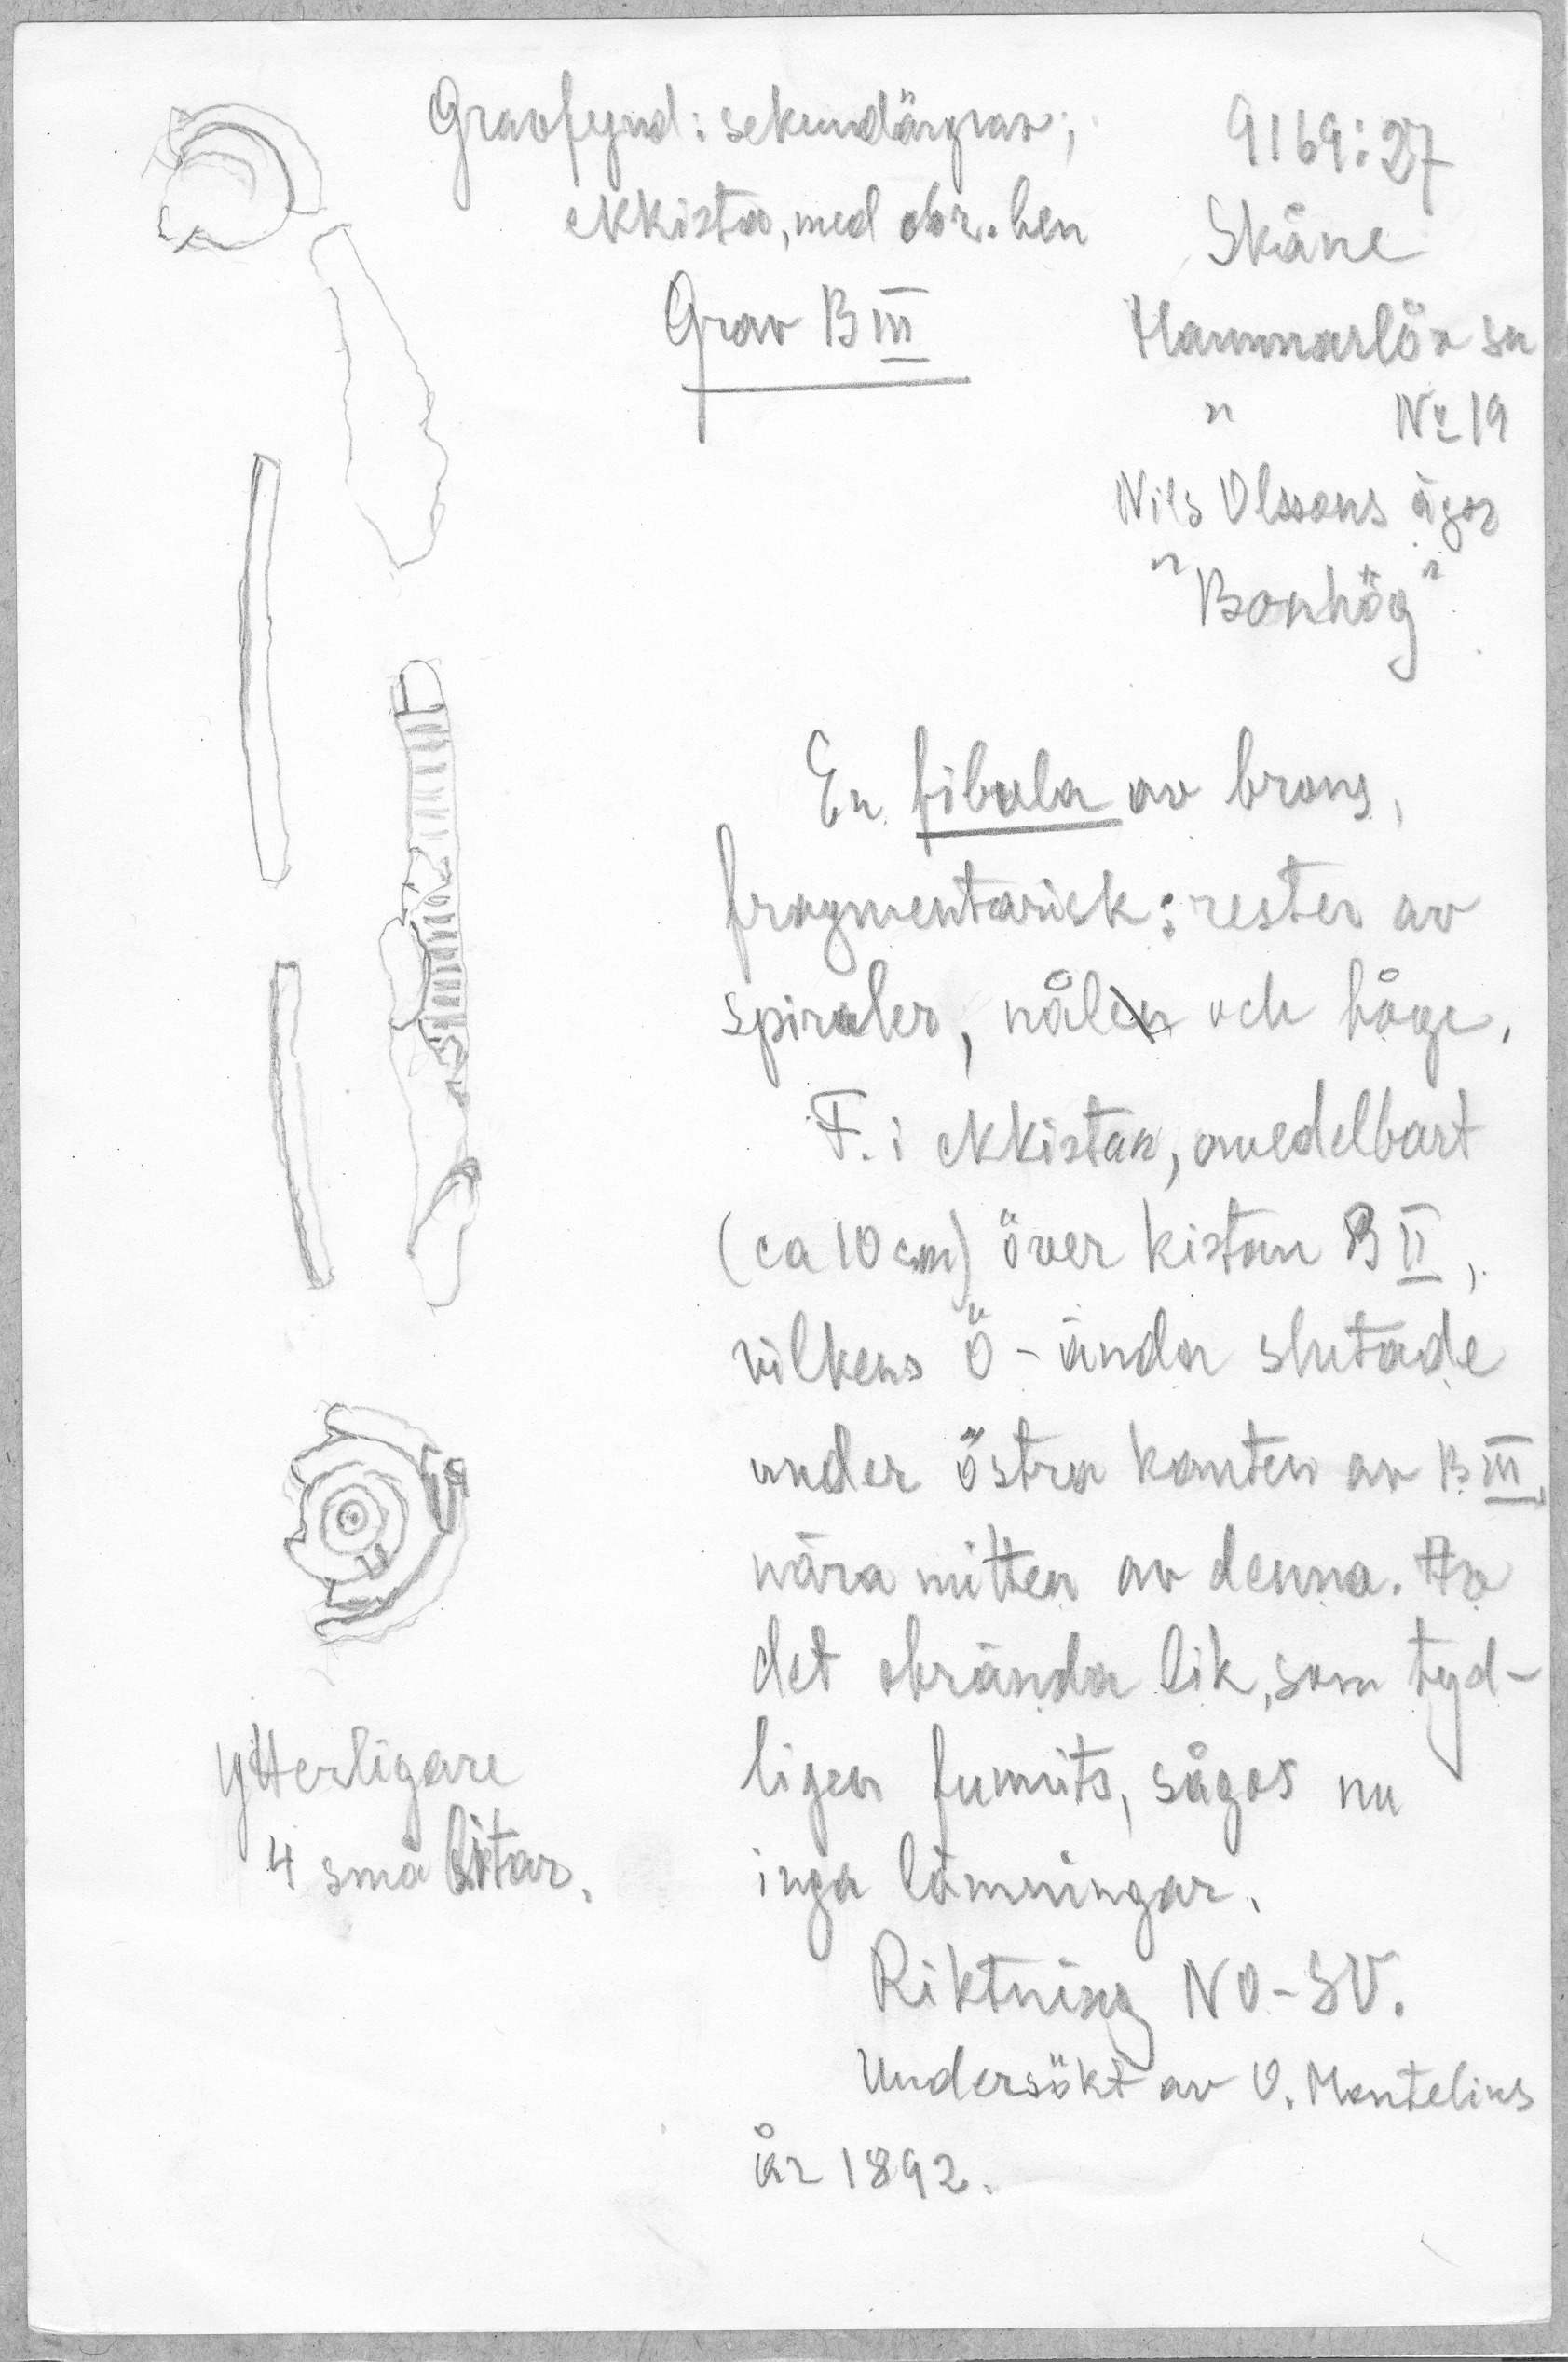 Gravfynd: sekundärgrav;
ekkista, med obr. ben
Grav B III
9169:27
Skåne
Hammarlöv sn
" No 19
Nils Olssons ägor
"Bonhög"
En fibula av brons,
fragmentarisk: rester av
spiraler, nål och båge.
F. i ekkistan, omedelbart
(ca 10 cm) över kistan B II,
vilkens ö-ända slutade
under östra kanten av B III,
nära mitten av denna. Av
det obrända lik, som tyd-
ligen funnits, sågos nu
inga lämningar.
Riktning NO-SV.
Undersökt av O. Montelius
år 1892.
Ytterligare
4 små bitar.